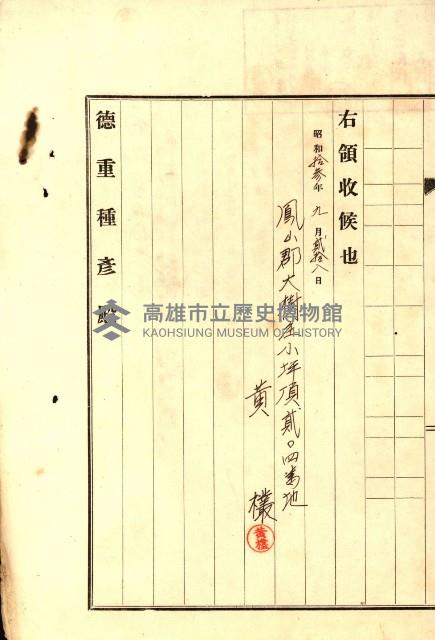 右領收候也
昭和拾參年九月貳拾八日
鳳山郡大樹庄小坪頂貳〇四番地
黃
德重種彥殿
高雄市立歷史博物館
KAOHSIUNG MUSEUM OF HISTORY